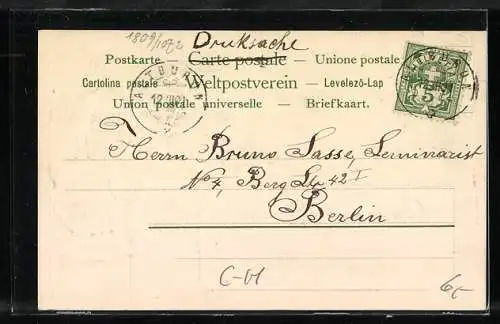 1809/1072
Drucksache
Postkarte — Carte postale — Unione postale
Cartolina postale Weltpostverein — Levelező-Lap
Union postale universelle — Briefkaart.
5
Herrn Bruno Sasse, Seminarist
No 4, Berg Str 42 I
Berlin
C-01
6,-